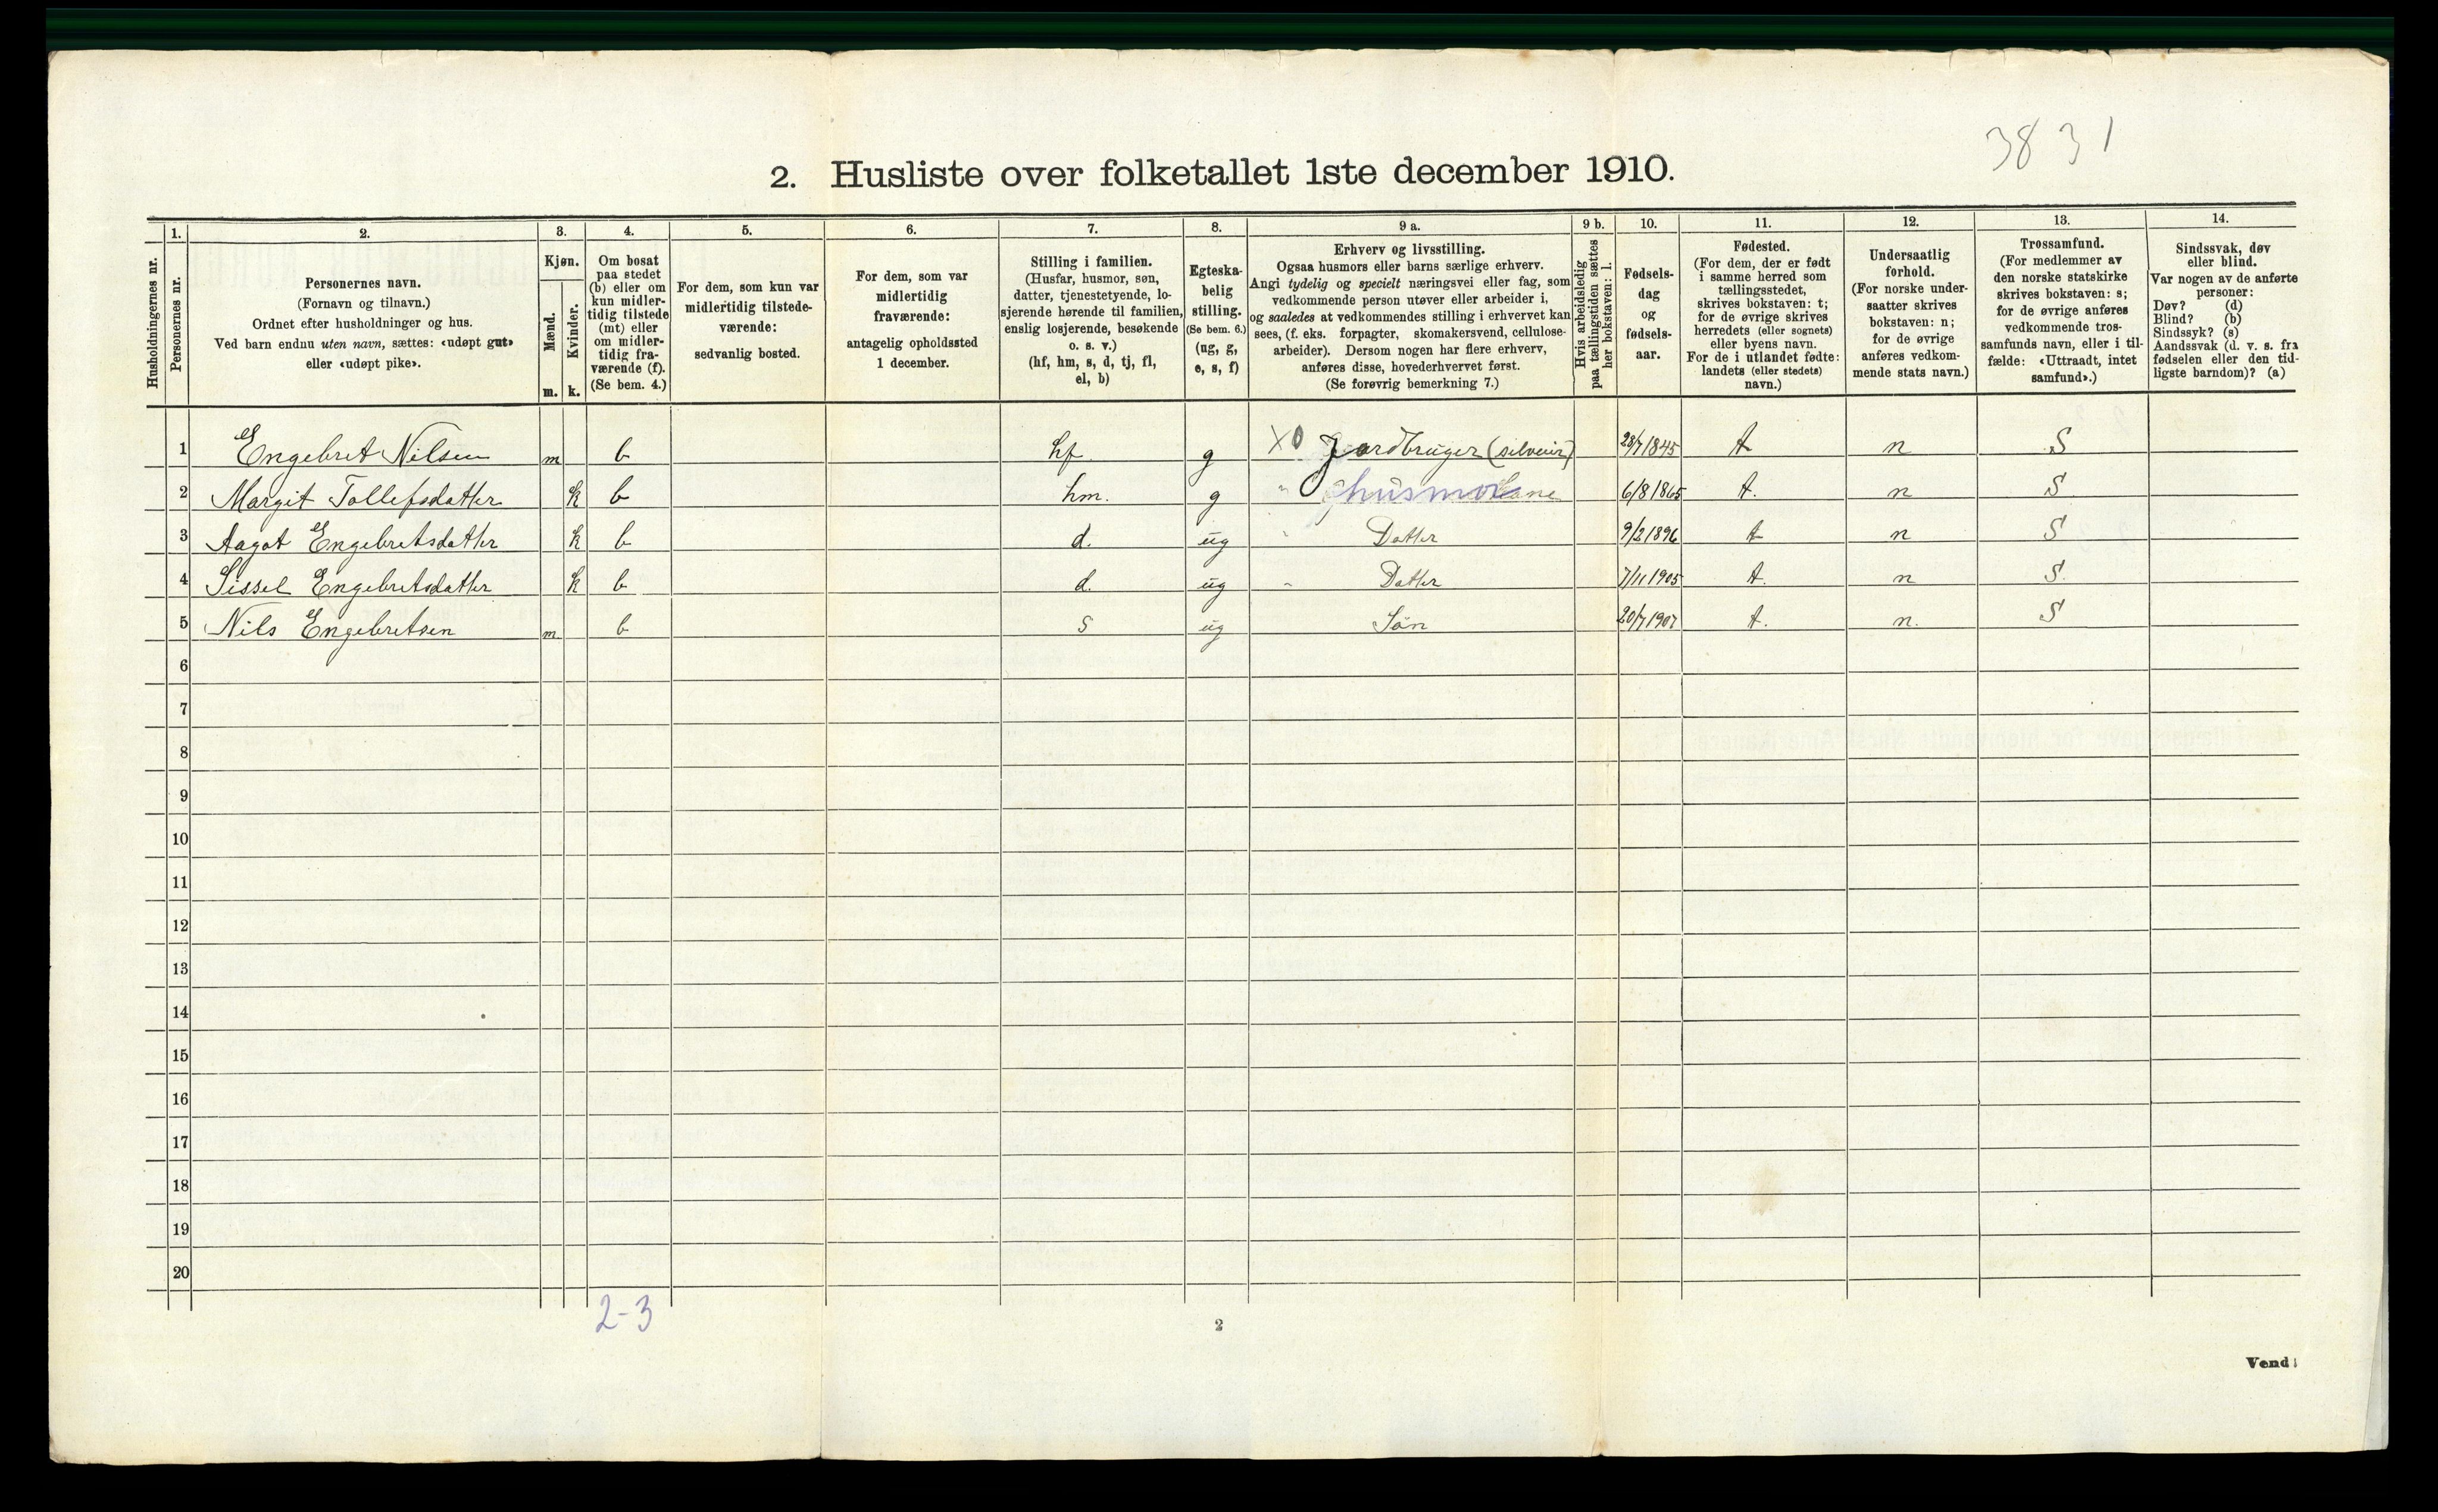 3831
2. Husliste over folketallet 1ste december 1910.
Husholdningernes nr.
1.
Personernes nr.
2.
Personernes navn.
(Fornavn og tilnavn.)
Ordnet efter husholdninger og hus.
Ved barn endnu uten navn, sættes: «udøpt gut»
eller «udøpt pike».
3.
Kjøn.
Mænd.
m.
Kvinder.
k.
4.
Om bosat
paa stedet
(b) eller om
kun midler-
tidig tilstede
(mt) eller
om midler-
tidig fra-
værende (f).
(Se bem. 4.)
5.
For dem, som kun var
midlertidig tilstede-
værende:
sedvanlig bosted.
6.
For dem, som var
midlertidig
fraværende:
antagelig opholdssted
1 december.
7.
Stilling i familien.
(Husfar, husmor, søn,
datter, tjenestetyende, lo-
sjerende hørende til familien,
enslig losjerende, besøkende
o. s. v.)
(hf, hm, s, d, tj, fl,
el, b)
8.
Egteska-
belig
stilling.
(Se bem. 6.)
(ug, g,
e, s, f)
9 a.
Erhverv og livsstilling.
Ogsaa husmors eller barns særlige erhverv.
Angi tydelig og specielt næringsvei eller fag, som
vedkommende person utøver eller arbeider i,
og saaledes at vedkommendes stilling i erhvervet kan
sees, (f. eks. forpagter, skomakersvend, cellulose-
arbeider). Dersom nogen har flere erhverv,
anføres disse, hovederhvervet først.
(Se forøvrig bemerkning 7.)
9 b.
Hvis arbeidsledig
paa tællingstiden sættes
her bokstaven: l.
10.
Fødsels-
dag
og
fødsels-
aar.
11.
Fødested.
(For dem, der er født
i samme herred som
tællingsstedet,
skrives bokstaven: t;
for de øvrige skrives
herredets (eller sognets)
eller byens navn.
For de i utlandet fødte:
landets (eller stedets)
navn.)
12.
Undersaatlig
forhold.
(For norske under-
saatter skrives
bokstaven: n;
for de øvrige
anføres vedkom-
mende stats navn.)
13.
Trossamfund.
(For medlemmer av
den norske statskirke
skrives bokstaven: s;
for de øvrige anføres
vedkommende tros-
samfunds navn, eller i til-
fælde: «Uttraadt, intet
samfund».)
14.
Sindssvak, døv
eller blind.
Var nogen av de anførte
personer:
Døv? (d)
Blind? (b)
Sindssyk? (s)
Aandssvak (d. v. s. fra
fødselen eller den tid-
ligste barndom)? (a)
1 Engebret Nilsen m b hf g X0 Jordbruger (selveier) 28/7 1845 t n S
2 Margit Tollefsdatter k b hm. g " husmor Kone 6/8 1865 t. n S
3 Aagot Engebretsdatter k b d. ug " Datter 9/2 1896 t n S
4 Sissel Engebretsdatter k b d. ug " Datter 7/11 1905 t. n S.
5 Nils Engebretsen m b s ug Sön 20/7 1907 t. n. S
6
7
8
9
10
11
12
13
14
15
16
17
18
19
20
2-3
2
Vend!